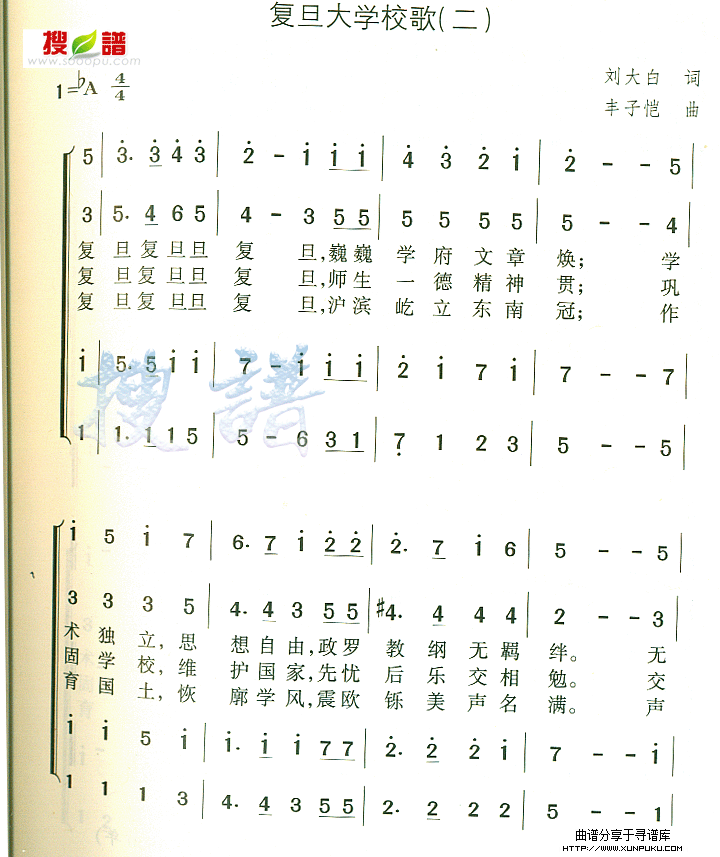 复旦大学校歌(二)
搜譜
www.sooopu.com
1=♭A 4/4
刘大白 词
丰子恺 曲
5 | 3. 3 4 3 | 2 - i i i | 4 3 2 i | 2 - - 5 |
3 | 5. 4 6 5 | 4 - 3 5 5 | 5 5 5 5 | 5 - - 4 |
复 旦复旦旦 复 旦,巍巍 学府文章 焕; 学
复 旦复旦旦 复 旦,师生 一德精神 贯; 巩
复 旦复旦旦 复 旦,沪滨 屹立东南 冠; 作
i | 5. 5 i i | 7 - i i i | 2 i 7 i | 7 - - 7 |
搜譜
1 | 1. 1 1 5 | 5 - 6 3 1 | 7 1 2 3 | 5 - - 5 |
i 5 i 7 | 6. 7 i 2 2 | 2. 7 i 6 | 5 - - 5 |
3 3 3 5 | 4. 4 3 5 5 | #4. 4 4 4 | 2 - - 3 |
术 独 立,思 想自由,政罗 教纲无羁 绊。 无
固 学 校,维 护国家,先忧 后乐交相 勉。 交
育 国 土,恢 廓学风,震欧 铄美声名 满。 声
i i 5 i | i. i i 7 7 | 2. 2 2 i | 7 - - i |
1 1 1 3 | 4. 4 3 5 5 | 2. 2 2 2 | 5 - - 1 |
曲谱分享于寻谱库
HTTP://WWW.XUNPUKU.COM